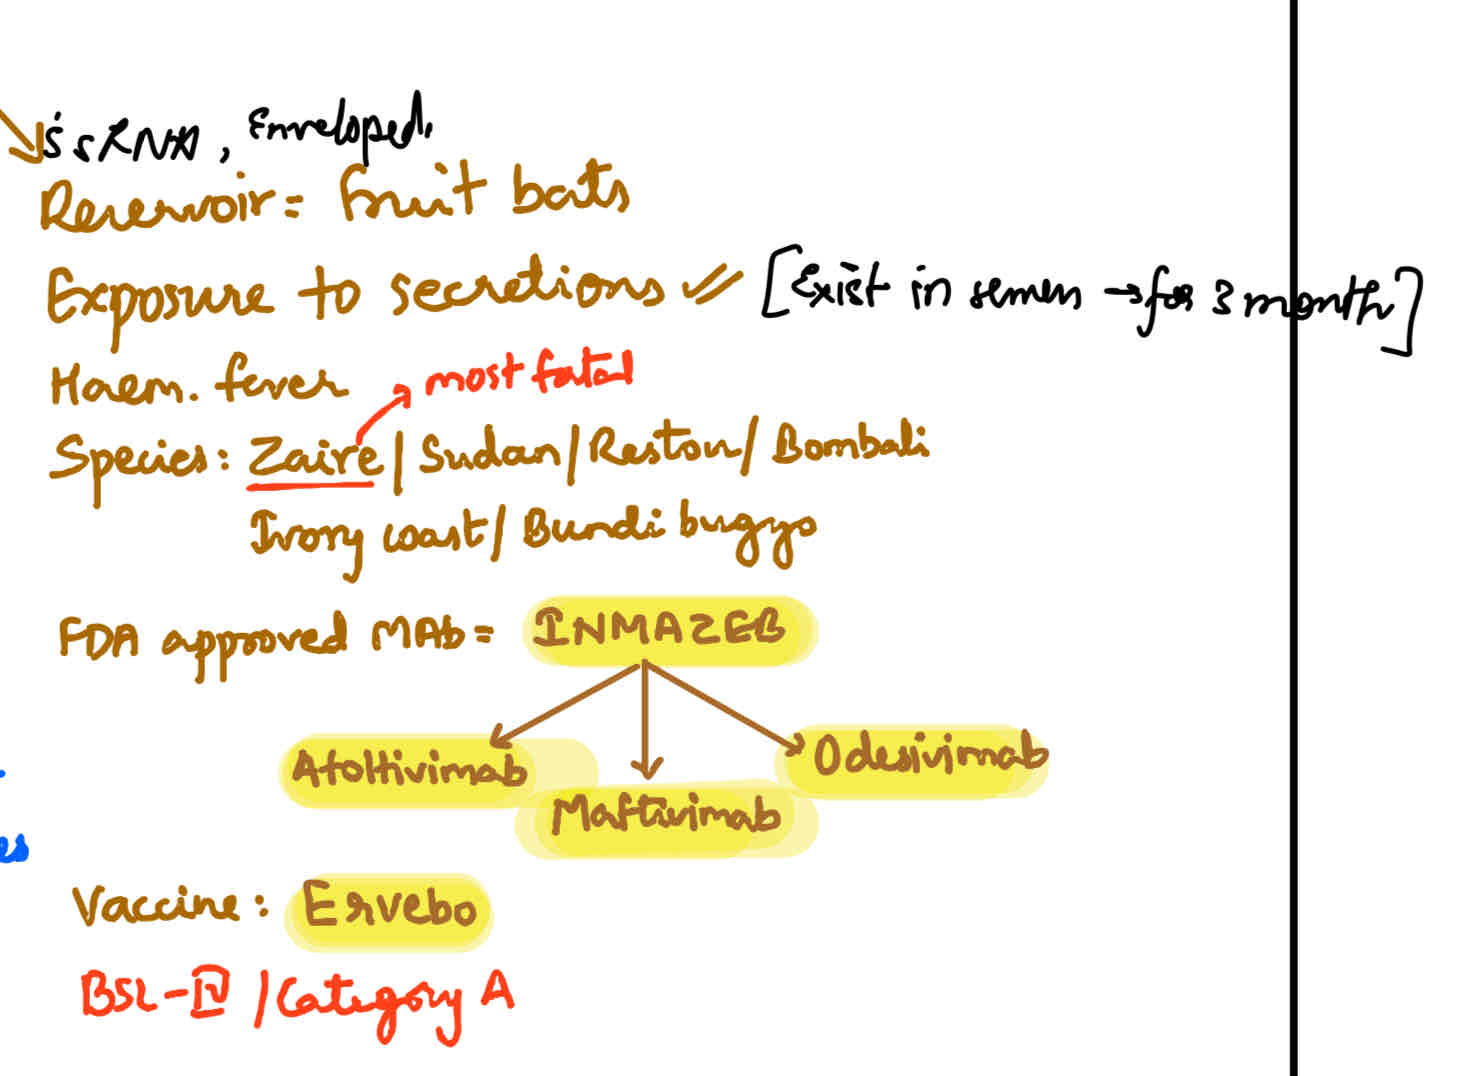 ssRNA, Enveloped.
Reservoir = fruit bats
Exposure to secretions [Exist in semen → for 3 month]
Haem. fever
→ most fatal
Species: Zaire / Sudan / Reston / Bombali
Ivory coast / Bundi bugyo
FDA approved MAb = INMAZEB
Atoltivimab Odesivimab
Maftivimab
es
Vaccine: Ervebo
BSL-IV / Category A